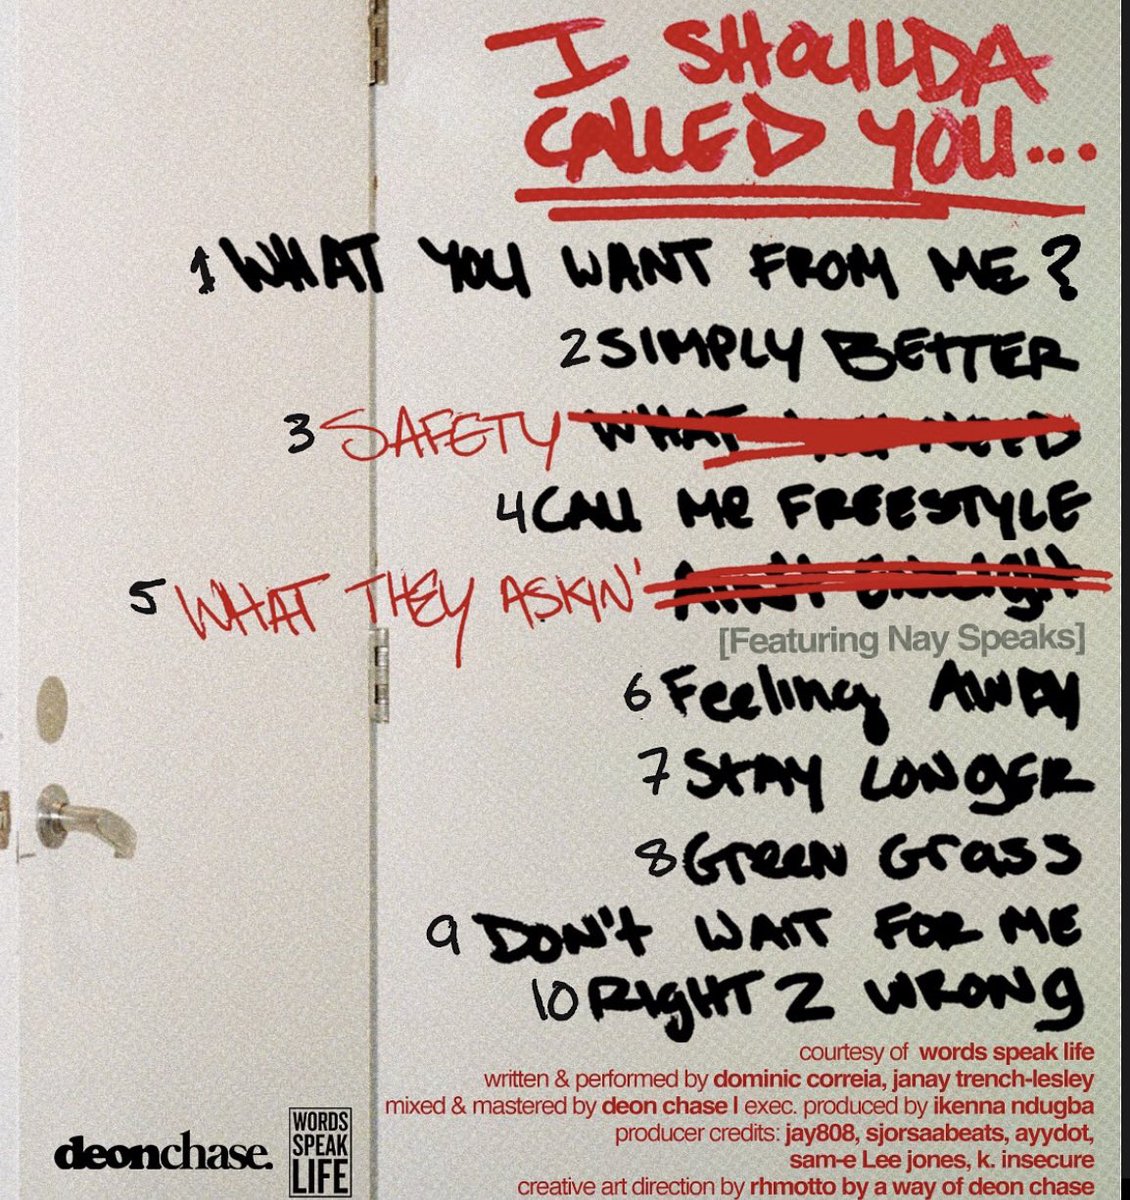 I SHOULDA
CALLED YOU...
1 WHAT YOU WANT FROM ME?
2 SIMPLY BETTER
3 SAFETY WHAT YOU NEED
4 CALL Me FREESTYLE
5 WHAT THEY ASKIN'
[Featuring Nay Speaks]
6 Feeling AWAY
7 STAY LONGER
8 GReeN GrasS
9 DON't WAIT FOR ME
10 RIgHT 2 WRONg
courtesy of words speak life
written & performed by dominic correia, janay trench-lesley
mixed & mastered by deon chase | exec. produced by ikenna ndugba
producer credits: jay808, sjorsaabeats, ayydot,
sam-e Lee jones, k. insecure
creative art direction by rhmotto by a way of deon chase
deonchase.
WORDS
SPEAK
LIFE